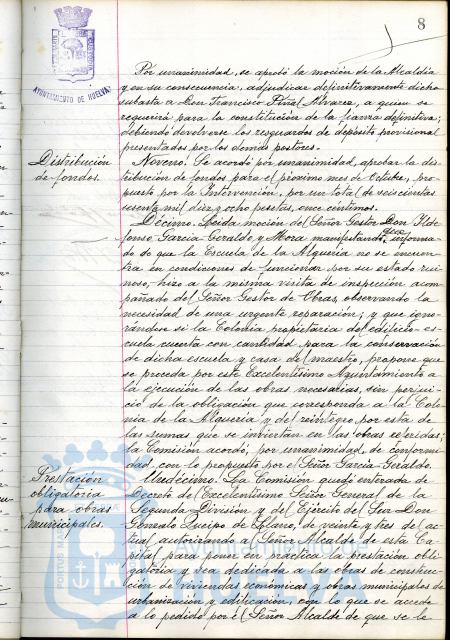 8
AYUNTAMIENTO DE HUELVA
Por unanimidad, se aprobó la moción de la Alcaldía
y en su consecuencia, adjudicar definitivamente dicha
subasta a Don Francisco Piñal Alvarez, a quien se
requerirá para la constitución de la fianza definitiva;
debiendo devolverse los resguardos de depósito provisional
presentados por los demás postores.
Distribución
de fondos.
Noveno: Se acordó por unanimidad, aprobar la dis-
tribución de fondos para el próximo mes de Octubre, pro-
puesto por la Intervención, por un total de seiscientas
sesenta mil diez y ocho pesetas, once céntimos.
Décimo. Leida moción del Señor Gestor Don Ilde
fonso García Geraldo y Mora manifestando que informa-
do de que la Escuela de la Alqueria no se encuen-
tra en condiciones de funcionar por su estado rui-
noso, hizo a la misma visita de inspección acom-
pañado del Señor Gestor de Obras, observando la
necesidad de una urgente reparación; y que igno-
rándose si la Colonia propietaria del edificio-es-
cuela cuenta con cantidad para la conservación
de dicha escuela y casa del maestro, propone que
se proceda por este Excelentísimo Ayuntamiento a
la ejecución de las obras necesarias, sin perjui-
cio de la obligación que corresponda a la Colo-
nia de la Alqueria y del reintegro por esta de
las sumas que se inviertan en las obras referidas;
la Comisión acordó, por unanimidad, de conformi-
dad, con lo propuesto por el Señor García Geraldo.
Prestación
obligatoria
para obras
municipales.
Undécimo. La Comisión quedó enterada de
Decreto del Excelentísimo Señor General de la
Segunda División y del Ejército del Sur Don
Gonzalo Queipo de Llano, de veinte y tres del ac-
tual, autorizando al Señor Alcalde de esta Ca-
pital para poner en práctica la prestación obli-
gatoria y sea dedicada a las obras de construc-
ción de viviendas económicas y obras municipales de
urbanización y edificación, con lo que se accede
a lo pedido por el Señor Alcalde de que se le